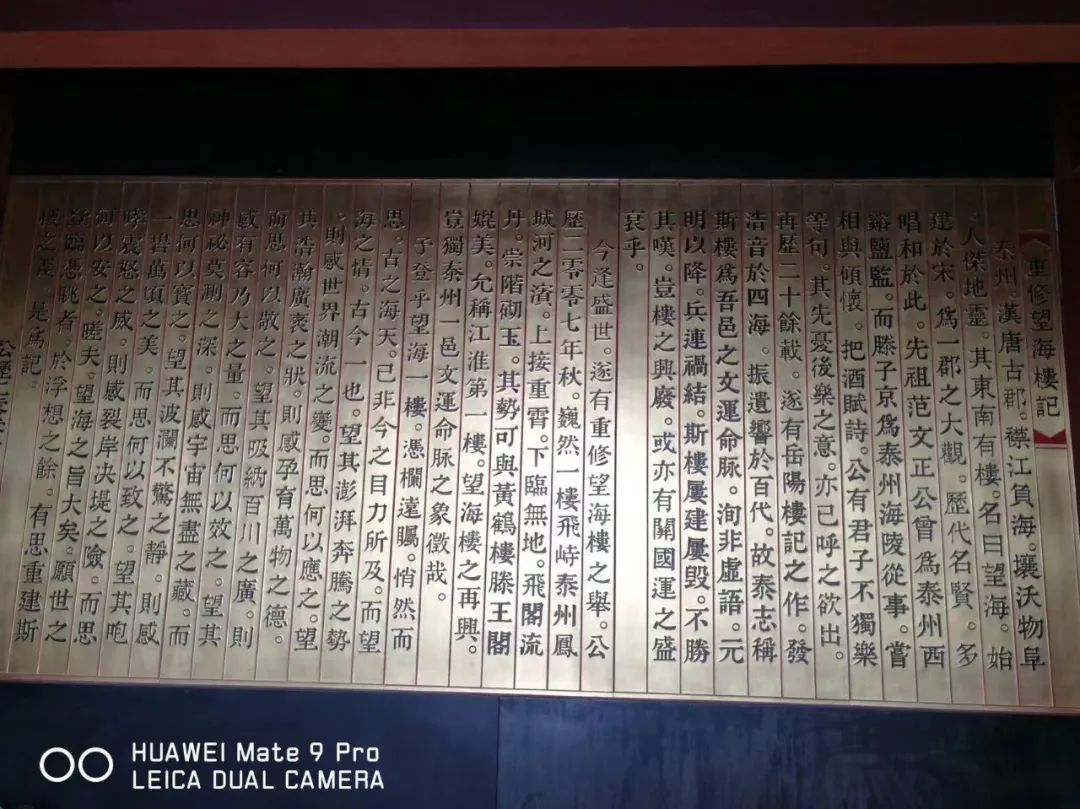 重修望海樓記
泰州漢唐古郡。襟江負海。壤沃物阜
人傑地靈。其東南有樓。名曰望海。始
建於宋。為一郡之大觀。歷代名賢。多
唱和於此。先祖范文正公曾為泰州西
谿鹽監。而滕子京為泰州海陵從事。嘗
相與傾懷。把酒賦詩。公有君子不獨樂
等句。其先憂後樂之意。亦已呼之欲出。
再歷二十餘載。遂有岳陽樓記之作。發
浩音於四海。振遺響於百代。故泰志稱
斯樓為吾邑之文運命脉。洵非虛語。元
明以降。兵連禍結。斯樓屢建屢毀。不勝
其嘆。豈樓之興廢。或亦有關國運之盛
衰乎。
今逢盛世。遂有重修望海樓之舉。公
歷二零零七年秋。巍然一樓飛峙泰州鳳
城河之濱。上接重霄。下臨無地。飛閣流
丹。崇階砌玉。其勢可與黃鶴樓滕王閣
媲美。允稱江淮第一樓。望海樓之再興。
豈獨泰州一邑文運命脉之象徵哉。
予登乎望海一樓。憑欄遠矚。悄然而
思。古之海天。已非今之目力所及。而望
海之情。古今一也。望其澎湃奔騰之勢
。則感世界潮流之變。而思何以應之。望
其浩瀚廣袤之狀。則感孕育萬物之德。
而思何以敬之。望其吸納百川之廣。則
感有容乃大之量。而思何以效之。望其
神祕莫測之深。則感宇宙無盡之藏。而
思何以寶之。望其波瀾不驚之靜。則感
一碧萬頃之美。而思何以致之。望其咆
哮震怒之威。則感裂岸決堤之險。而思
何以安之。嗟夫。望海之旨大矣。願世之
登臨憑眺者。於浮想之餘。有思重建斯
樓之義。是為記。
HUAWEI Mate 9 Pro
LEICA DUAL CAMERA